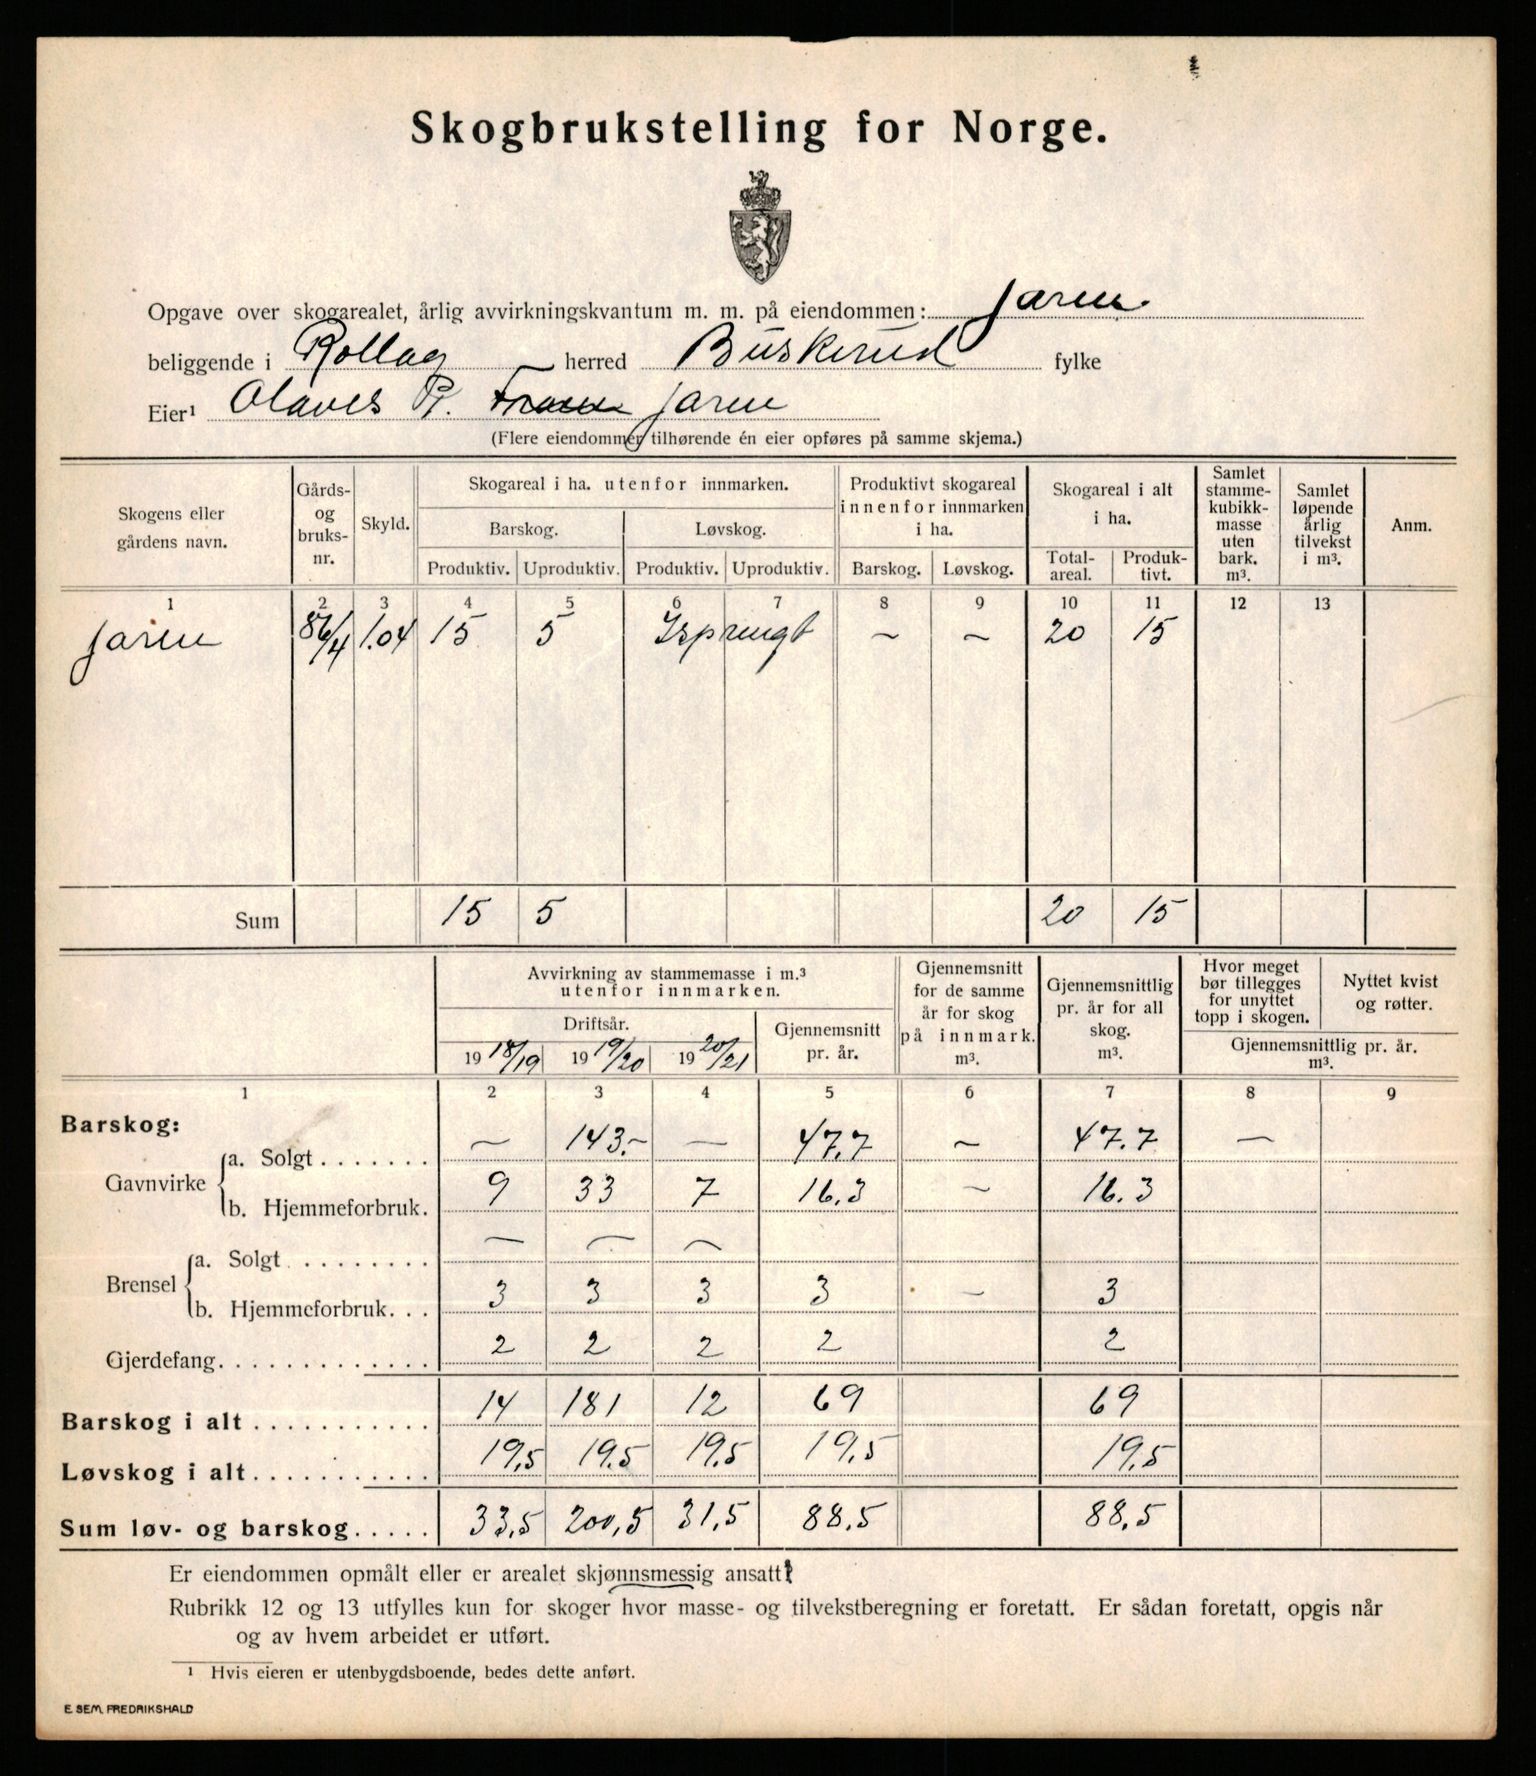 Skogbrukstelling for Norge.
Opgave over skogarealet, årlig avvirkningskvantum m. m. på eiendommen: Jaren
beliggende i Rollag herred Buskerud fylke
Eier¹ Olaves P. Jaren
(Flere eiendommer tilhørende én eier opføres på samme skjema.)
Skogens eller gårdens navn. Gårds- og bruks- nr. Skyld. Skogareal i ha. utenfor innmarken. Produktivt skogareal innenfor innmarken i ha. Skogareal i alt i ha. Samlet stamme- kubikk- masse uten bark. m³. Samlet løpende årlig tilvekst i m³. Anm.
Barskog. Løvskog.
Produktiv. Uproduktiv. Produktiv. Uproduktiv. Barskog. Løvskog. Total- areal. Produk- tivt.
1 2 3 4 5 6 7 8 9 10 11 12 13
Jaren 86/4 1.04 15 5 Isprengt ~ ~ 20 15
Sum 15 5 20 15
Avvirkning av stammemasse i m.³ utenfor innmarken. Gjennemsnitt for de samme år for skog på innmark. m³. Gjennemsnittlig pr. år for all skog. m³. Hvor meget bør tillegges for unyttet topp i skogen. Nyttet kvist og røtter.
Driftsår. Gjennemsnitt pr. år. Gjennemsnittlig pr. år. m³.
19 18/19 19 19/20 19 20/21
1 2 3 4 5 6 7 8 9
Barskog:
Gavnvirke a. Solgt . . . . . . . ~ 143.- — 47.7 ~ 47.7 ~
b. Hjemmeforbruk. 9 33 7 16.3 ~ 16.3
Brensel a. Solgt . . . . . . . . ~ ~ ~
b. Hjemmeforbruk. . . 3 3 3 3 ~ 3
Gjerdefang. . . . . . . . . . . . . 2 2 2 2 2
Barskog i alt . . . . . . . . . . . 14 181 12 69 69
Løvskog i alt . . . . . . . . . . . 19,5 19.5 19.5 19.5 19.5
Sum løv- og barskog . . . . . 33,5 200,5 31,5 88.5 88.5
Er eiendommen opmålt eller er arealet skjønnsmessig ansatt?
Rubrikk 12 og 13 utfylles kun for skoger hvor masse- og tilvekstberegning er foretatt. Er sådan foretatt, opgis når
og av hvem arbeidet er utført.
¹ Hvis eieren er utenbygdsboende, bedes dette anført.
E. SEM, FREDRIKSHALD